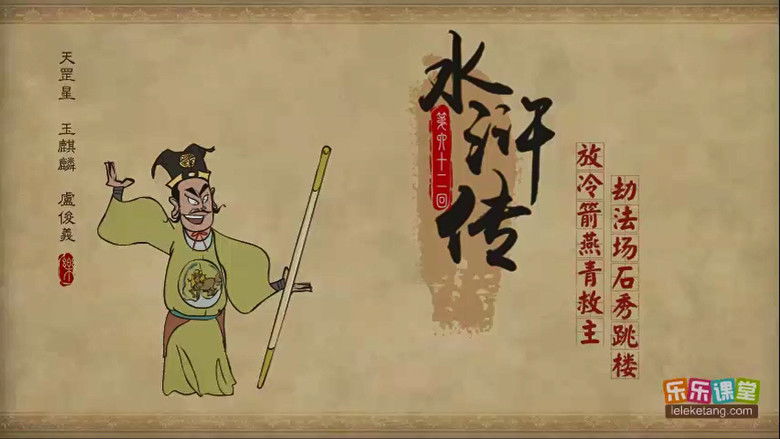 天罡星 玉麒麟 盧俊義
水浒传
第六十二回
放冷箭燕青救主
劫法场石秀跳楼
乐乐课堂
leleketang.com